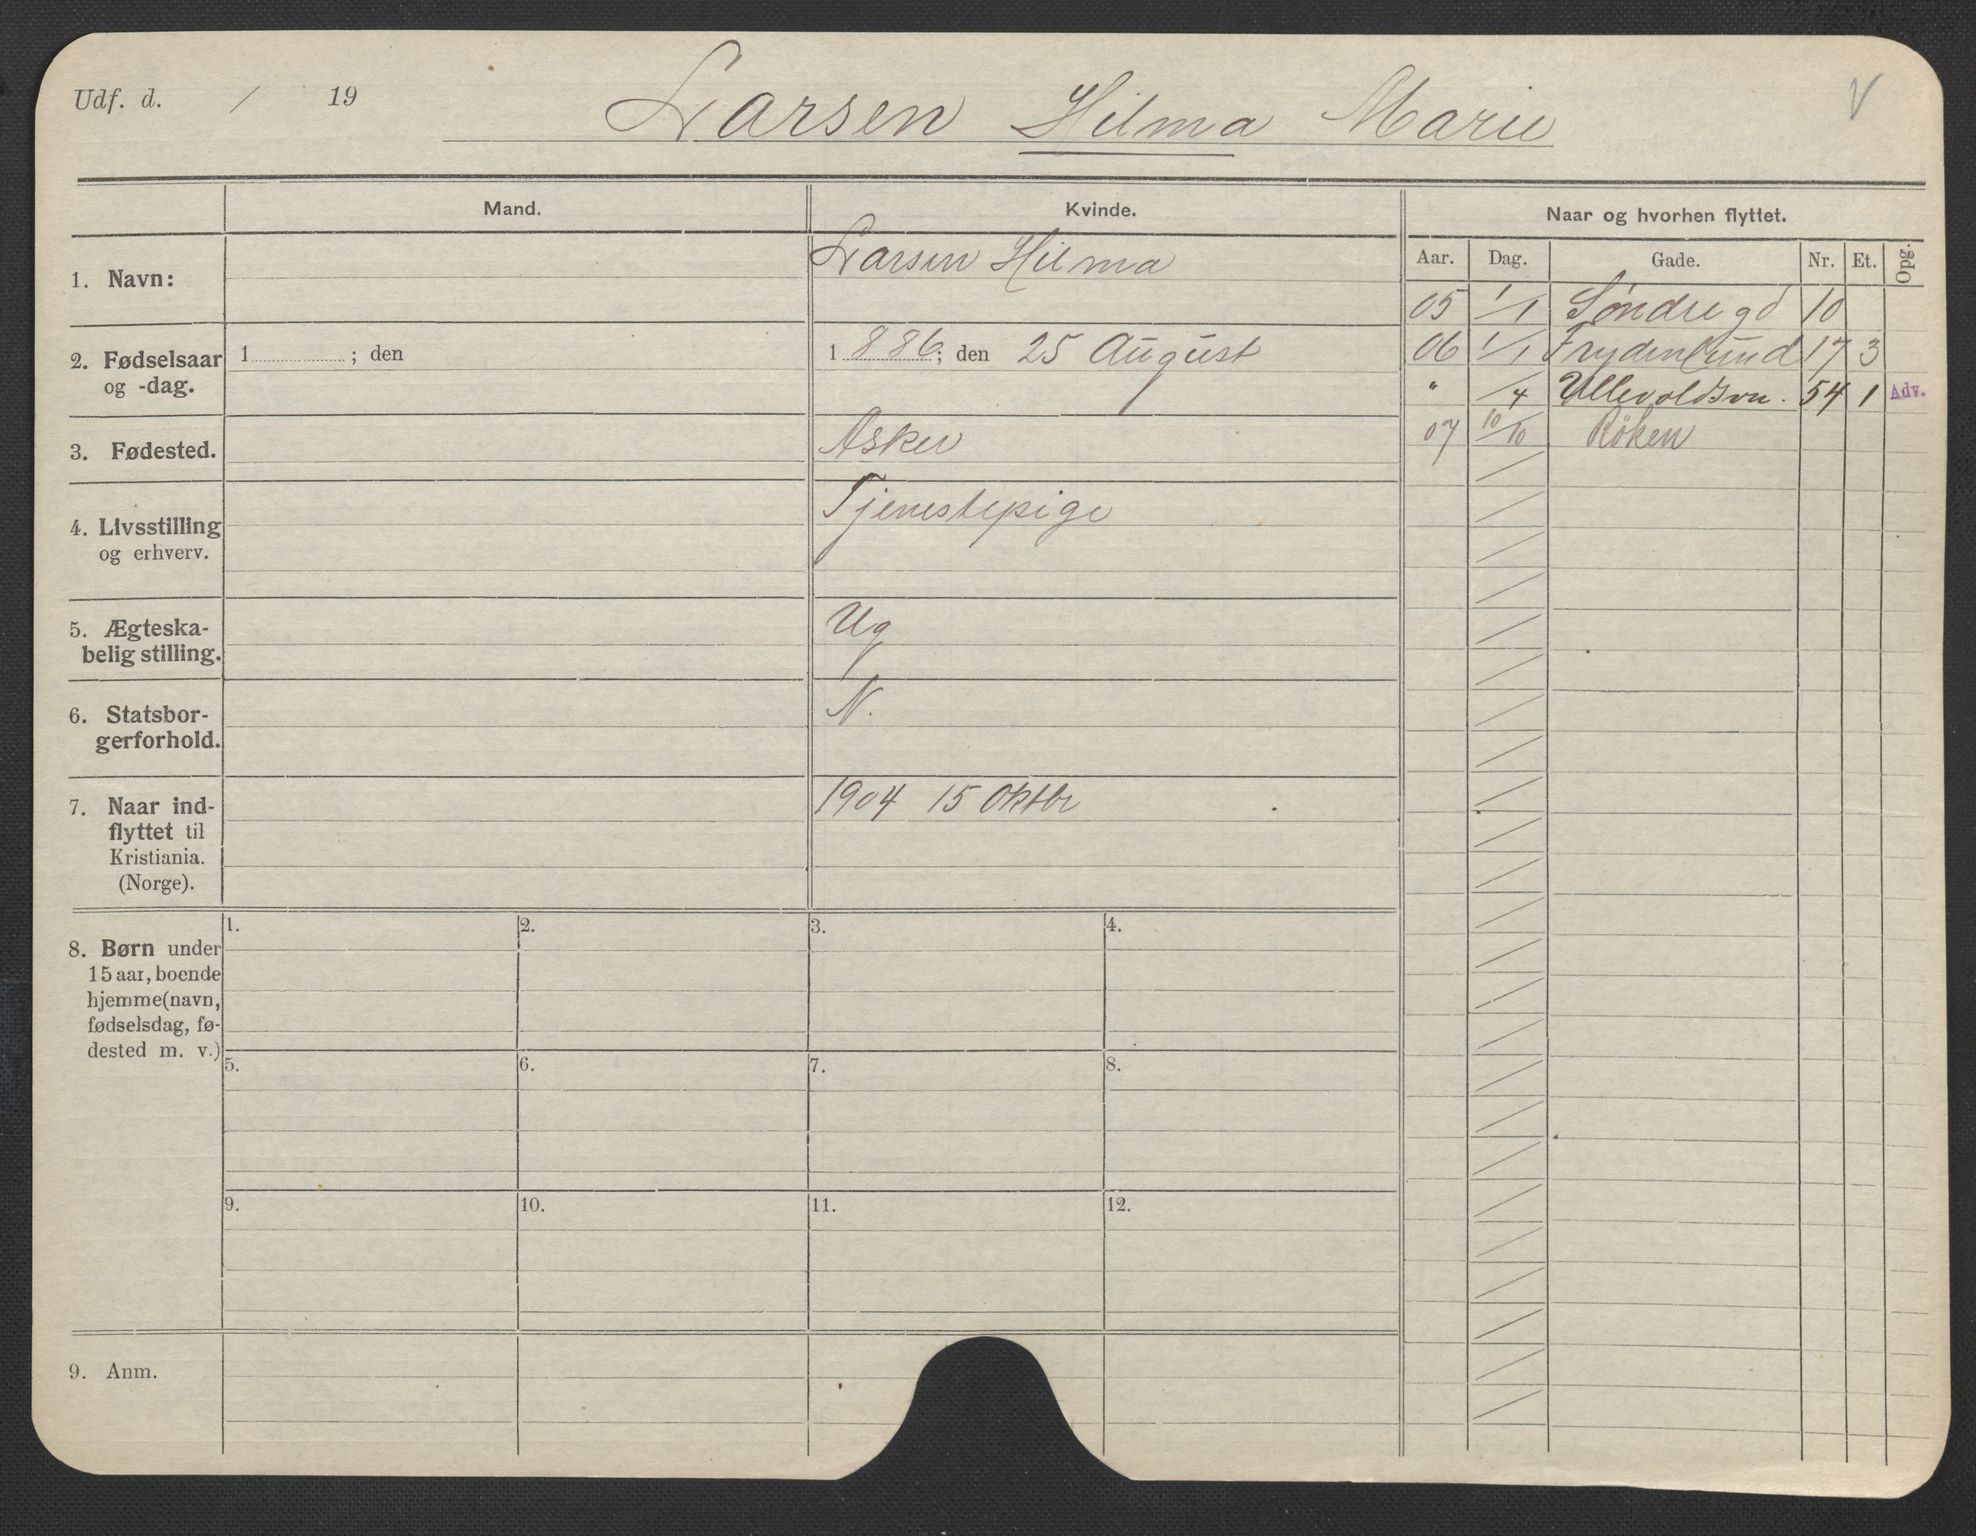 Udf. d. / 19
Larsen Hilma Marie
V
Mand.
Kvinde.
Naar og hvorhen flyttet.
Aar. Dag. Gade. Nr. Et. Opg.
1. Navn:
Larsen Hilma
05 1/1 Søndregd 10
2. Fødselsaar og -dag.
1 ; den
1886; den 25 August
06 1/1 Frydenlund 17 3
" /4 Ullevoldsvn. 54 1 Adv.
3. Fødested.
Asker
07 10/10 Røken
4. Livsstilling
og erhverv.
Tjenestepige
5. Ægteska-
belig stilling.
Ug
6. Statsbor-
gerforhold.
N.
7. Naar ind-
flyttet til
Kristiania.
(Norge).
1904 15 Oktbr
8. Børn under
15 aar, boende
hjemme (navn,
fødselsdag, fø-
dested m. v.)
1. 2. 3. 4.
5. 6. 7. 8.
9. 10. 11. 12.
9. Anm.